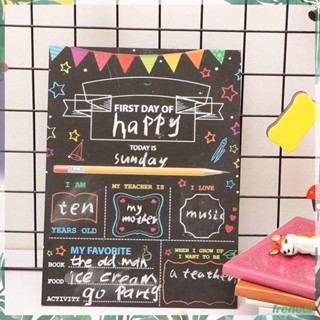 FIRST DAY OF
happy
TODAY IS
sunday
I AM
ten
YEARS OLD
MY TEACHER IS
my
mother
I LOVE
music
MY FAVORITE
BOOK the old man
FOOD ice cream
ACTIVITY go party
WHEN I GROW UP
I WANT TO BE
a teather
freneci